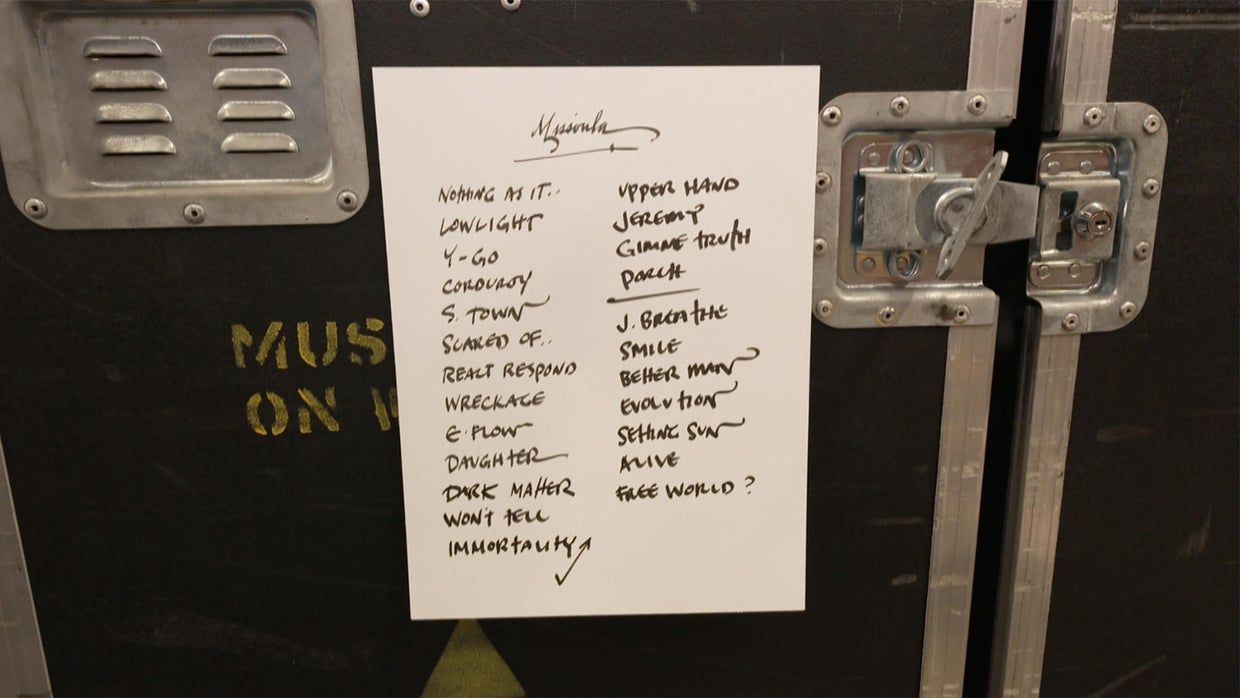 Missoula
NOTHING AS IT..
LOWLIGHT
Y-GO
CORDUROY
S. TOWN
SCARED OF..
REACT RESPOND
WRECKAGE
E. FLOW
DAUGHTER
DARK MATTER
WON'T TELL
IMMORTALITY
UPPER HAND
JEREMY
GIMME TRUTH
PORCH
J. BREATHE
SMILE
BETTER MAN
EVOLUTION
SETTING SUN
ALIVE
FREE WORLD?
MUS
ON